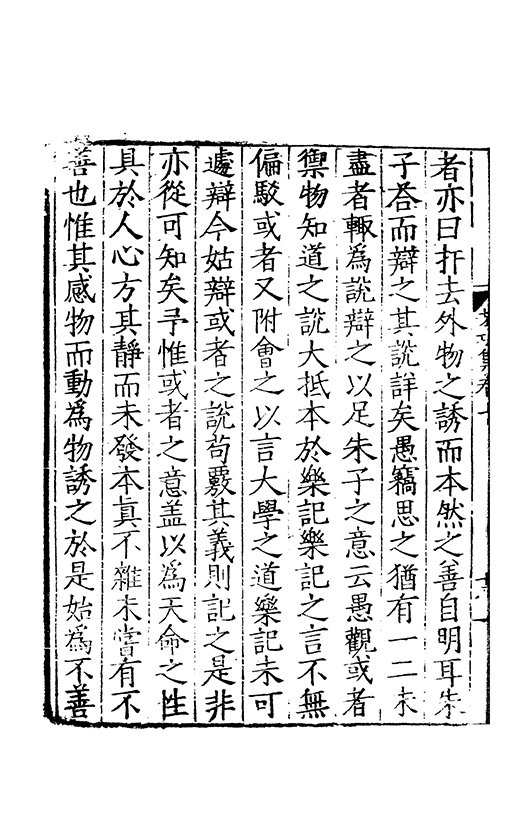 者亦曰扞去外物之誘而本然之善自明耳朱
子答而辯之其說詳矣愚竊思之猶有一二未
盡者輒爲說辯之以足朱子之意云愚觀或者
禦物知道之說大抵本於樂記樂記之言不無
偏駁或者又附會之以言大學之道樂記未可
遽辯今姑辯或者之說苟覈其義則記之是非
亦從可知矣予惟或者之意盖以爲天命之性
具於人心方其靜而未發本真不雜未嘗有不
善也惟其感物而動爲物誘之於是始為不善